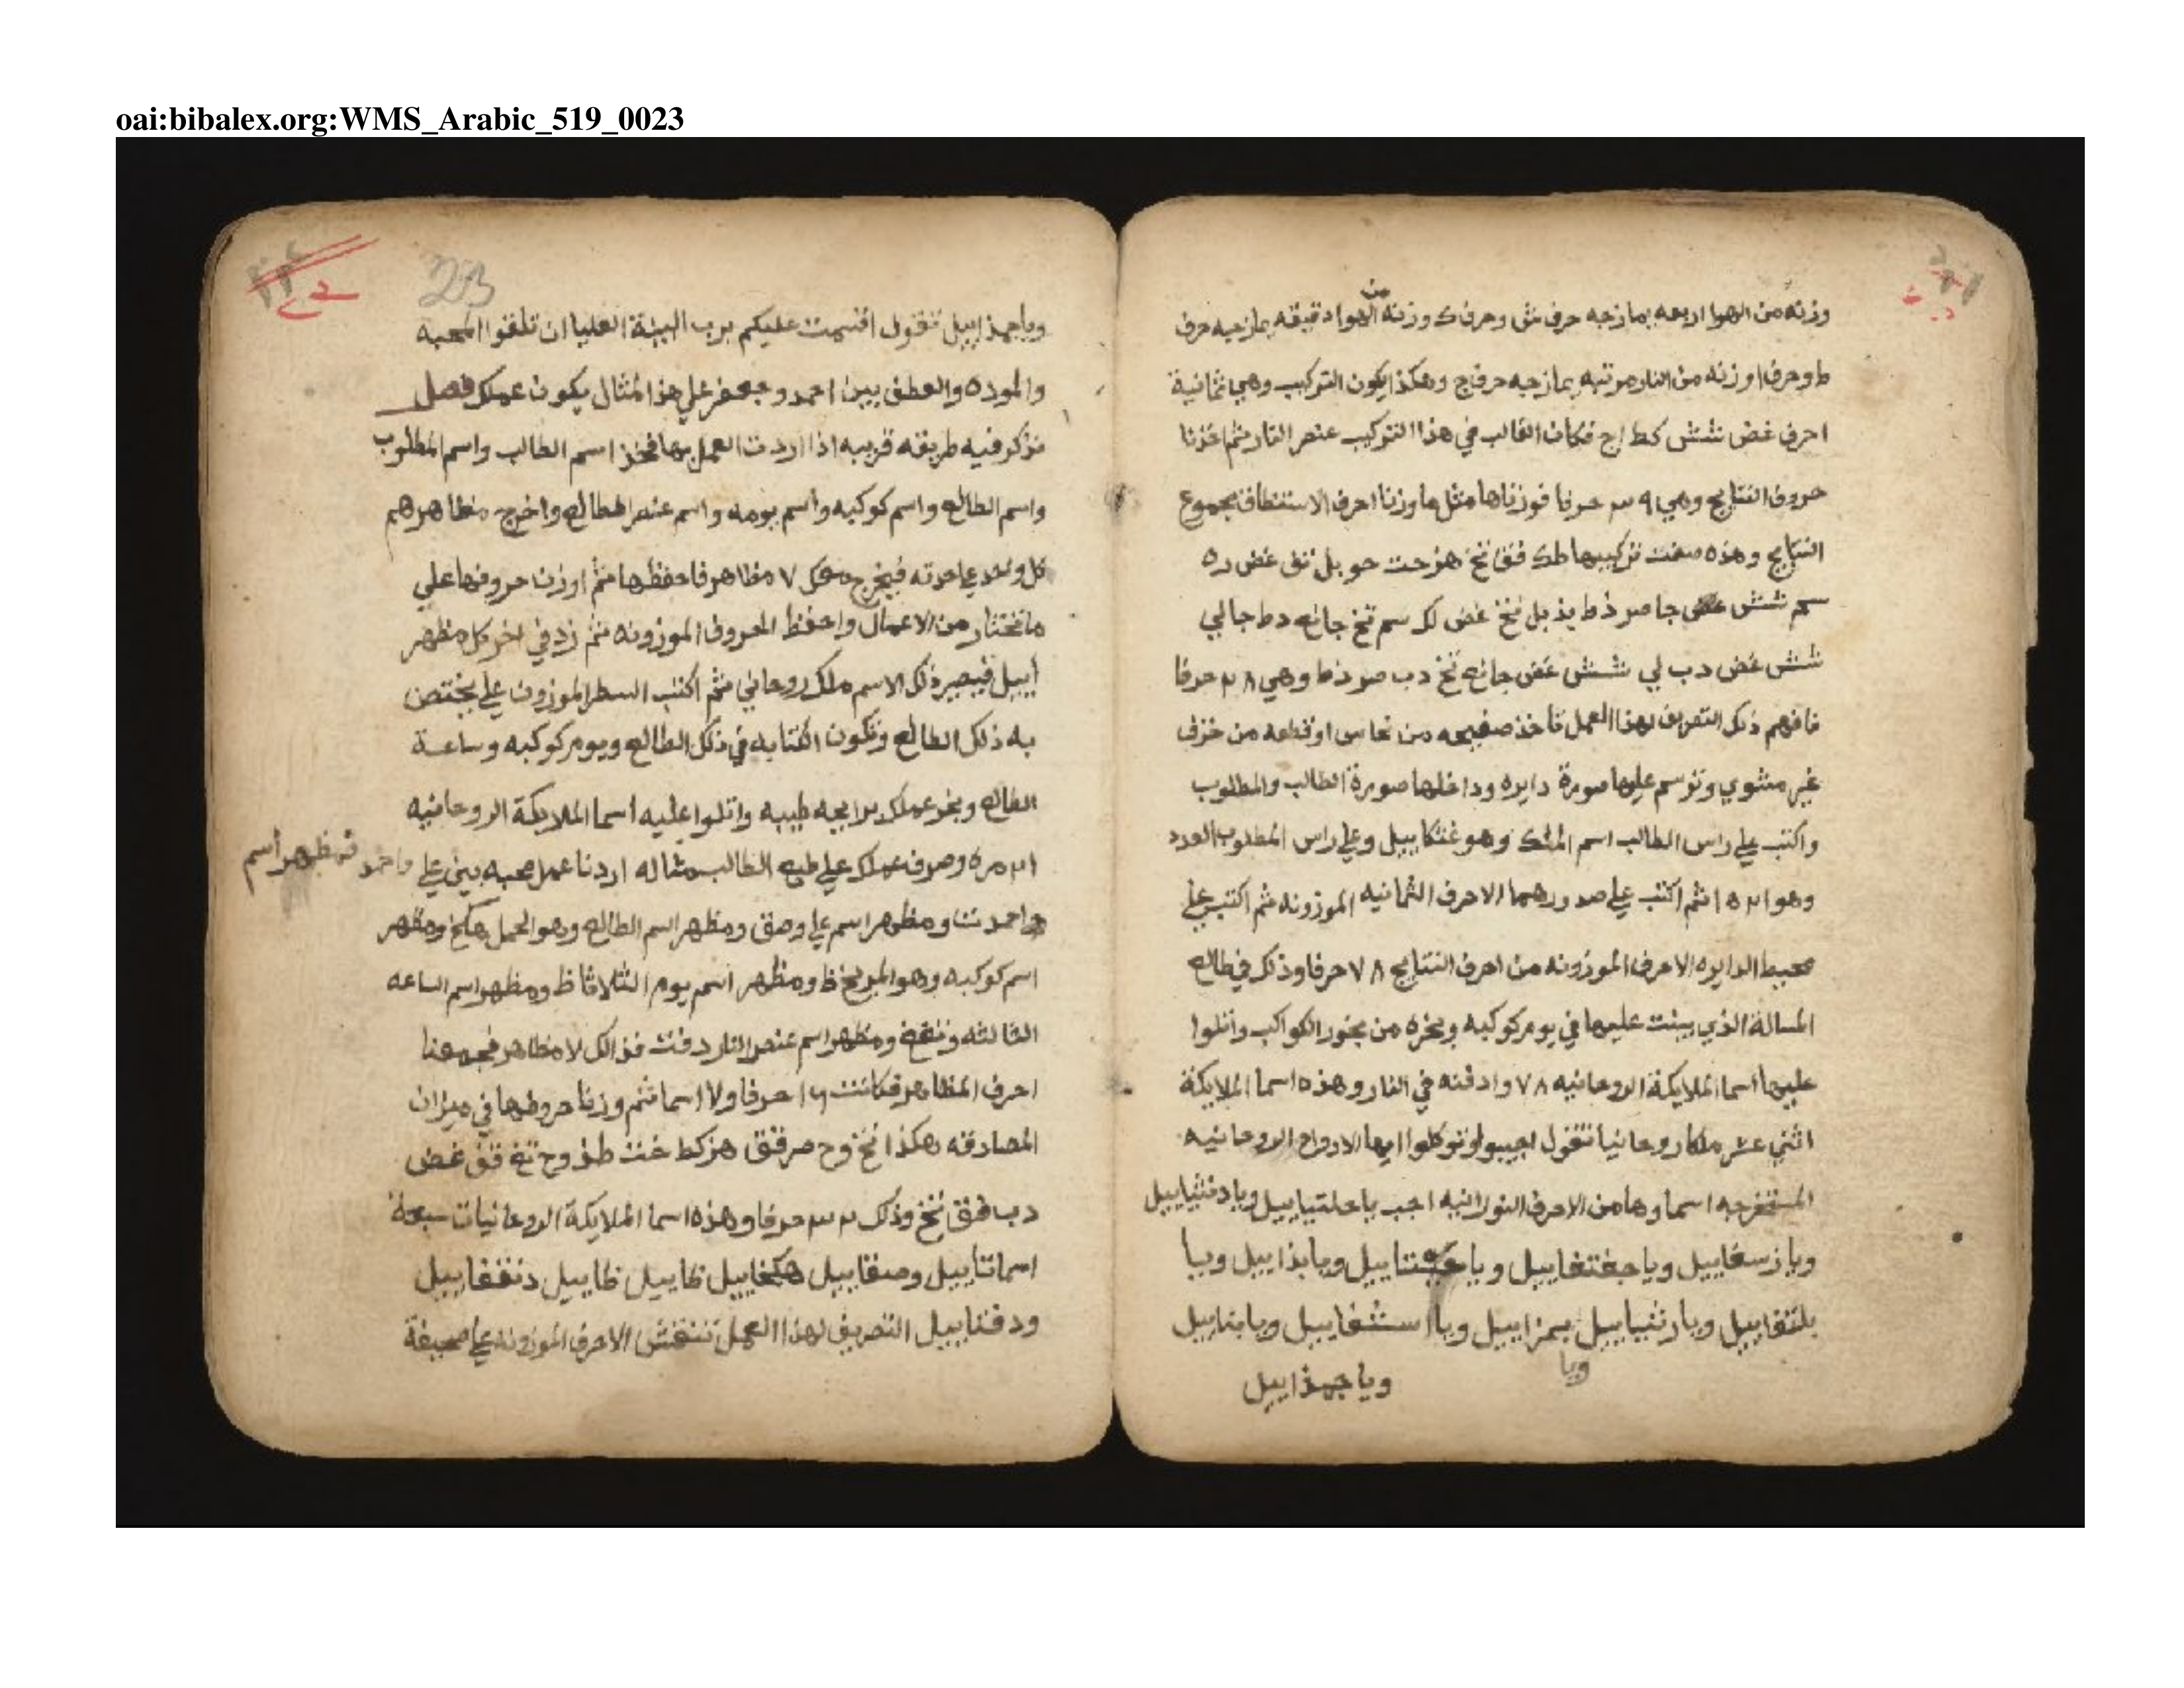 oai:bibalex.org:WMS_Arabic_519_0023
وزنه من الهوا اربعه بمازجه حرف ش وحرف ك وزنه من الهوا دقيقه بمازجيه حرف
ط وحرف ا وزنه من النار مرتبه بمازجه حرف ج وهكذا يكون التركيب وهي ثمانية
احرف غض شش كط اج فكان الغالب في هذا التركيب عنصر النار ثم اخذنا
حروف النتايج وهي ٣٩ حرفا فوزناها مثل ما وزنا احرف الاستنطاق مجموع
النتايج وهذه صفت تركيبها طك فق نخ هز حت حو بل تق غض ده
سم شش جا صر ذط يذ بل نخ غض لك سم تخ جا دط جا لي
شش غض دب لي شش غض جا نخ دب صر ذط وهي ٧٨ حرفا
فافهم ذلك التصريف لهذا العمل تاخذ صفيحه من نحاس او قطعه من خزف
غير مشوي وترسم عليها صورة دايره وداخلها صورة الطالب والمطلوب
واكتب علي راس الطالب اسم الملك وهو غثكاييل وعلي راس المطلوب العدد
وهو ١٥٢١ ثم اكتب علي صدورهما الاحرف الثمانيه الموزونه ثم اكتب علي
محيط الدايره الاحرف الموزونه من احرف النتايج ٧٨ حرفا وذلك في طالع
المسالة الذي بينت عليها في يوم كوكبه وبخره من بخور الكواكب واتلوا
عليها اسما الملايكة الروحانيه ٧٨ وادفنه في النار وهذه اسما الملايكة
اثني عشر ملكا روحانيا تقول اجيبوا وتوكلوا ايها الارواح الروحانيه
المستخرجه اسماوها من الاحرف النورانيه اجب يا حلتياييل ويا دفثياييل
ويا زسغاييل ويا جغتغاييل ويا ويا يذاييل ويا
بلتقاييل ويا رثياييل ويا يمزاييل ويا استثغاييل ويا بتاييل
ويا جهذاييل
23
ويا جهذاييل تقول اقسمت عليكم برب البينة العليا ان تلقوا المحبه
والموده والعطف بين احمد وجعفر علي هذا المثال يكون عملك فصل
نذكر فيه طريقه قريبه اذا اردت العمل بها فخذ اسم الطالب واسم المطلوب
واسم الطالع واسم كوكبه واسم يومه واسم عنصر الطالع واخرج مظاهرهم
كل واحد علي حدته فيخرج معك ٧ مظاهر فاحفظها ثم اوزن حروفها علي
ما تختار من الاعمال واحفظ الحروف الموزونه ثم زد في اخر كل مظهر
اييل فيصير ذلك الاسم ملك روحاني ثم اكتب السطر الموزون علي يختص
به ذلك الطالع وتكون الكتابه في ذلك الطالع ويوم كوكبه وساعة
الطالع وبخر عملك برايحه طيبه واتلوا عليه اسما الملايكة الروحانيه
٢١ مره وصرف عملك علي طبع الطالب مثاله اردنا عمل محبه بين علي واحمد فمظهر اسم
احمد تت ومظهر اسم علي وصق ومظهر اسم الطالع وهو الحمل هكخ ومظهر
اسم كوكبه وهو المريخ ظ ومظهر اسم يوم الثلاثا ظ ومظهر اسم الساعه
الثالثه ونقغ ومظهر اسم عنصر النار دفت فذالك ٧ مظاهر فجمعنا
احرف المظاهر فكانت ١٦ حرفا و٧ اسما ثم وزنا حروفها في ميزان
المصادقه هكذا نخ وح صر فق هز كط خت طذ وح تغ فق غض
دب فق نخ وذلك ٣٢ حرفا وهذه اسما الملايكة الروحانيات سبعة
اسما تتاييل وصقاييل هكخاييل ظاييل ظاييل دنقغاييل
ودفتاييل التصريف لهذا العمل تنقش الاحرف الموزونه علي صحيفة